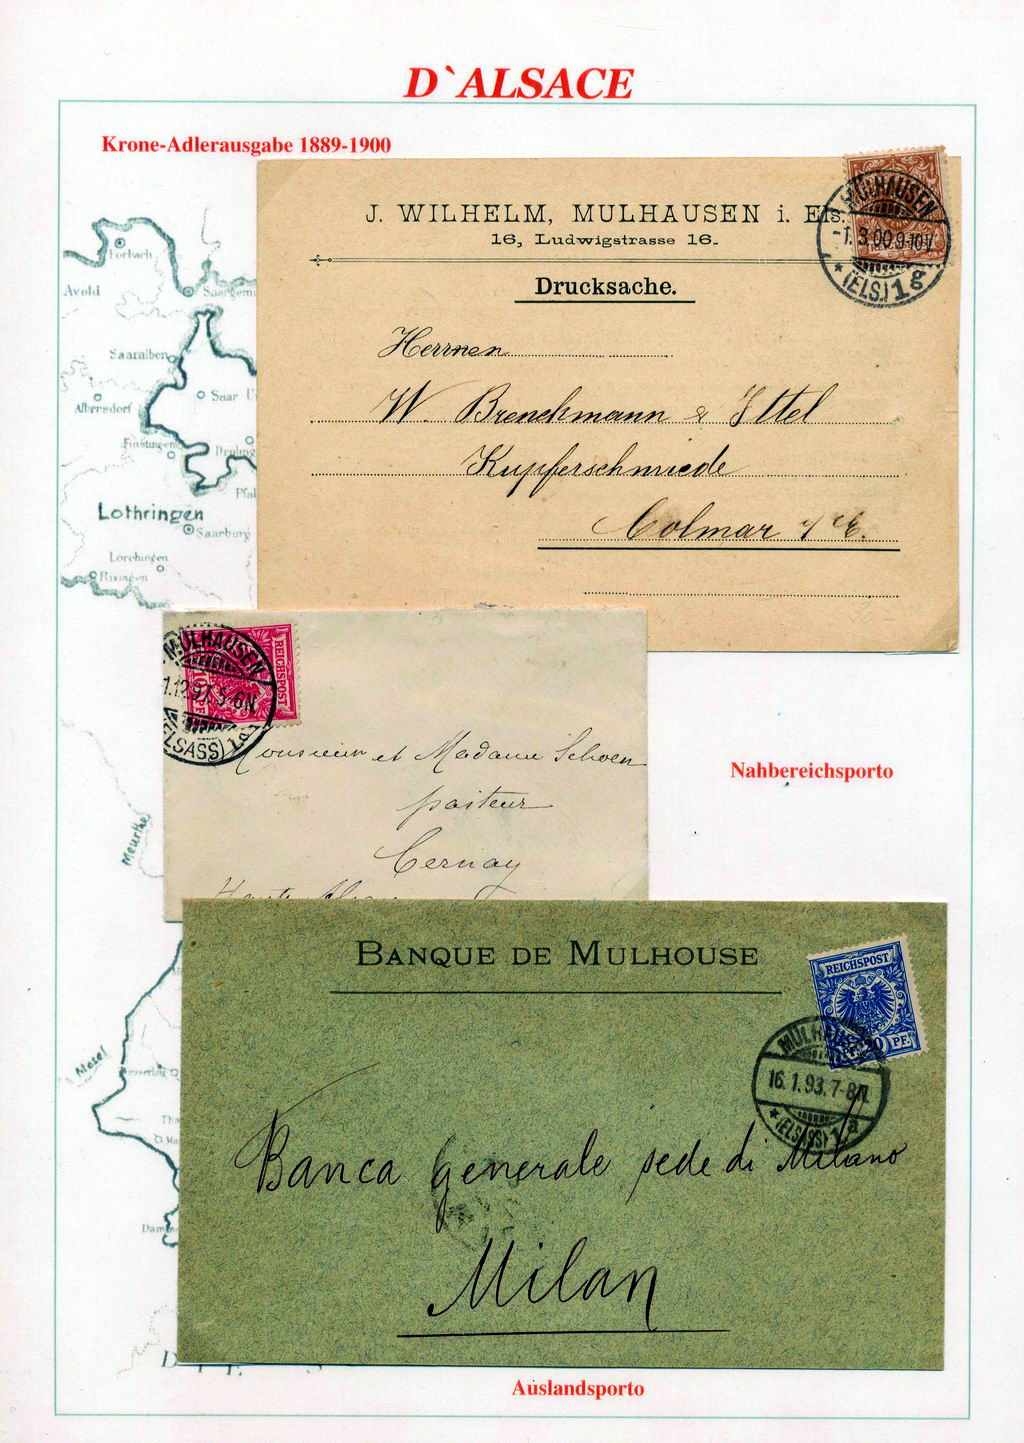 D`ALSACE
Krone-Adlerausgabe 1889-1900
J. WILHELM, MULHAUSEN i. Els.
16, Ludwigstrasse 16.
Drucksache.
Herrnen
W. Brenckmann & Ittel
Kupferschmiede
Colmar i/E.
MÜLHAUSEN
-1.3.00.9-10V.
* (ELS.) 1g
Forbach
Avold
Saargem
Saaralben
Albersdorf
Saar U
Finstingen
Druling
Pfal
Lothringen
Saarburg
Lörchingen
Rixingen
MÜLHAUSEN
1.12.97.5-6N.
ELSASS)
REICHSPOST
10 PF
Monsieur et Madame Schoen
pasteur
Cernay
Haute Alsace
Nahbereichsporto
Meurthe
BANQUE DE MULHOUSE
REICHSPOST
20 PF.
MÜLHAUSEN
16.1.93.7-8N.
* (ELSASS) 1a
Mosel
Banca generale sede di Milano
Milan
Damm
Auslandsporto